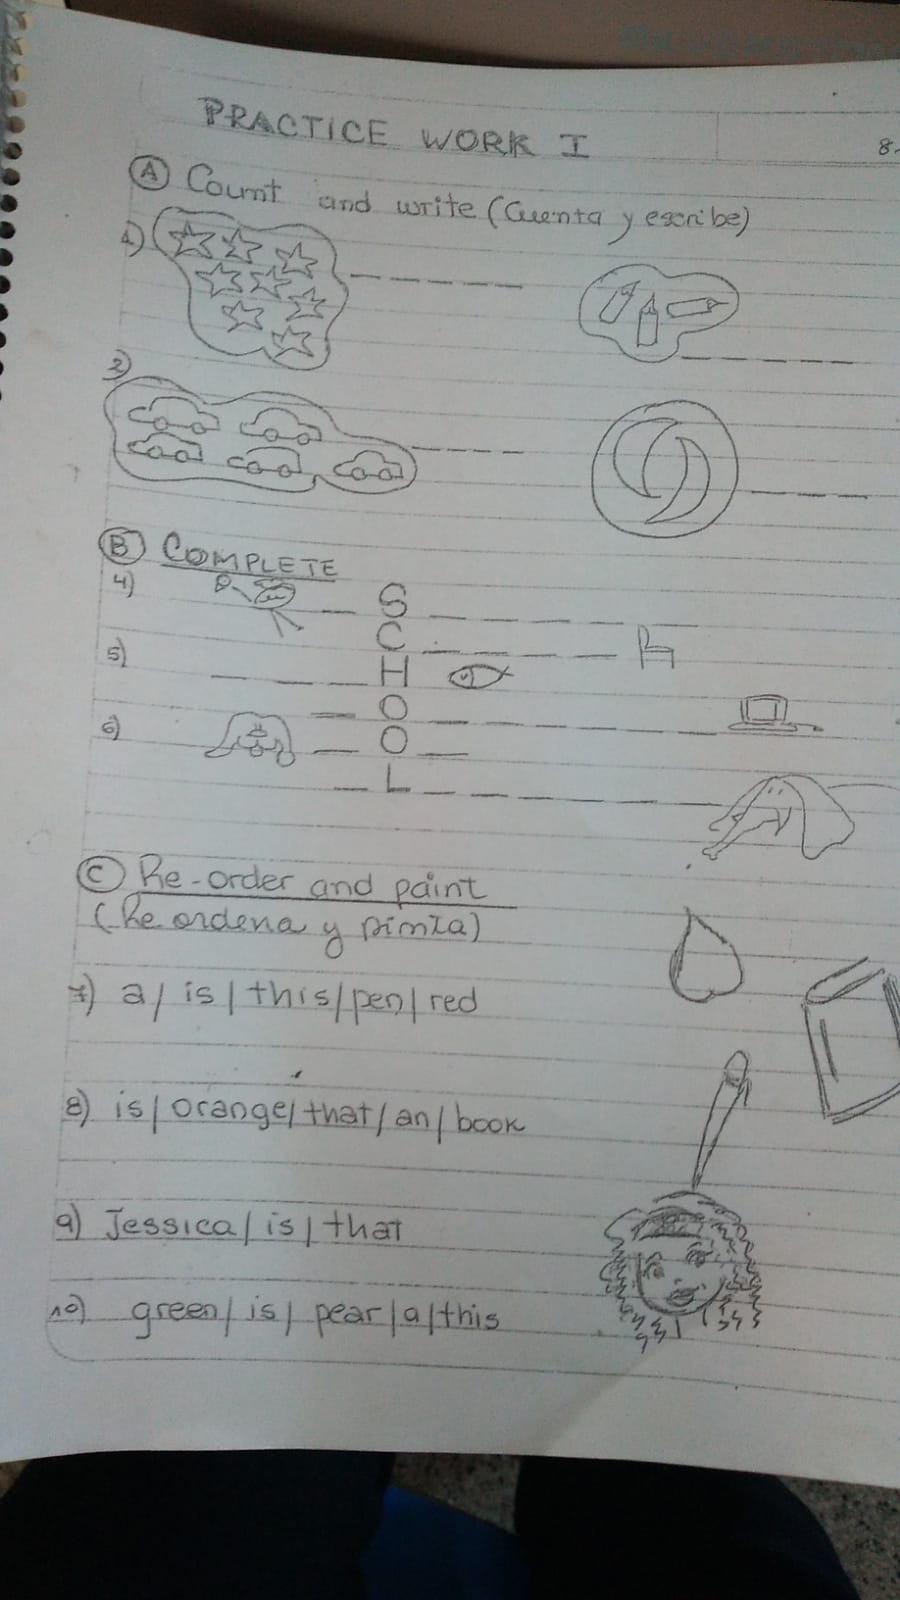 PRACTICE WORK I
8-
A Count and write (Cuenta y escribe)
1) _ _ _ _ _
_ _ _ _ _
2) _ _ _ _
_ _ _ _
B COMPLETE
4) _ S _ _ _ _ _
C _ _ _ _
5) _ _ _ H
_ O _ _ _ _ _
6) _ O _
_ L _ _ _ _ _
C Re-order and paint
(Re ordena y pinta)
7) a/ is/ this/pen/red
8) is/ orange/ that/ an/ book
9) Jessica/ is/ that
10) green/ is/ pear/a/this